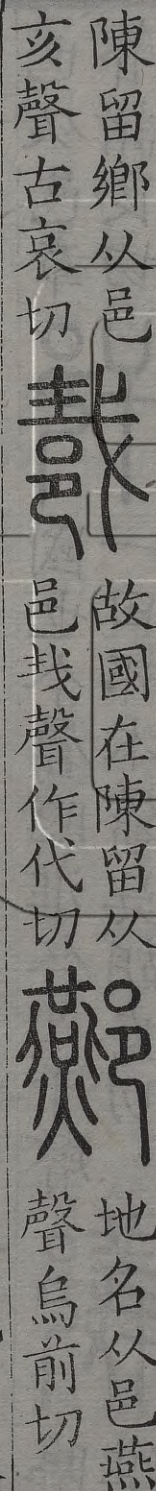 陳留鄉从邑
亥聲古哀切
𢧵
故國在陳留从
邑𢦏聲作代切
酀
地名从邑燕
聲烏前切